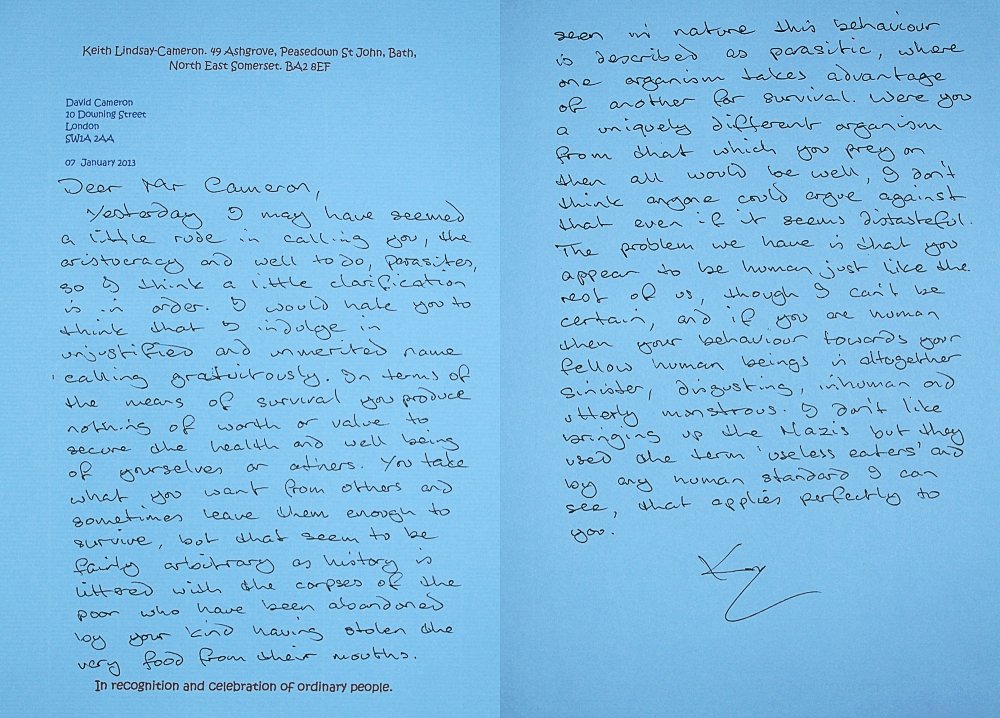 Keith Lindsay-Cameron. 49 Ashgrove, Peasedown St John, Bath,
North East Somerset. BA2 8EF
David Cameron
10 Downing Street
London
SW1A 2AA
07 January 2013
Dear Mr Cameron,
Yesterday I may have seemed
a little rude in calling you, the
aristocracy and well to do, parasites,
so I think a little clarification
is in order. I would hate you to
think that I indulge in
unjustified and unmerited name
calling gratuitously. In terms of
the means of survival you produce
nothing of worth or value to
secure the health and well being
of yourselves or others. You take
what you want from others and
sometimes leave them enough to
survive, but that seem to be
fairly arbitrary as history is
littered with the corpses of the
poor who have been abandoned
by your kind having stolen the
very food from their mouths.
In recognition and celebration of ordinary people.
seen in nature this behaviour
is described as parasitic, where
one organism takes advantage
of another for survival. Were you
a uniquely different organism
from that which you prey on
then all would be well, I don't
think anyone could argue against
that even if it seems distasteful.
The problem we have is that you
appear to be human just like the
rest of us, though I can't be
certain, and if you are human
then your behaviour towards your
fellow human beings is altogether
sinister, disgusting, inhuman and
utterly monstrous. I don't like
bringing up the Nazis but they
used the term 'useless eaters' and
by any human standard I can
see, that applies perfectly to
you.